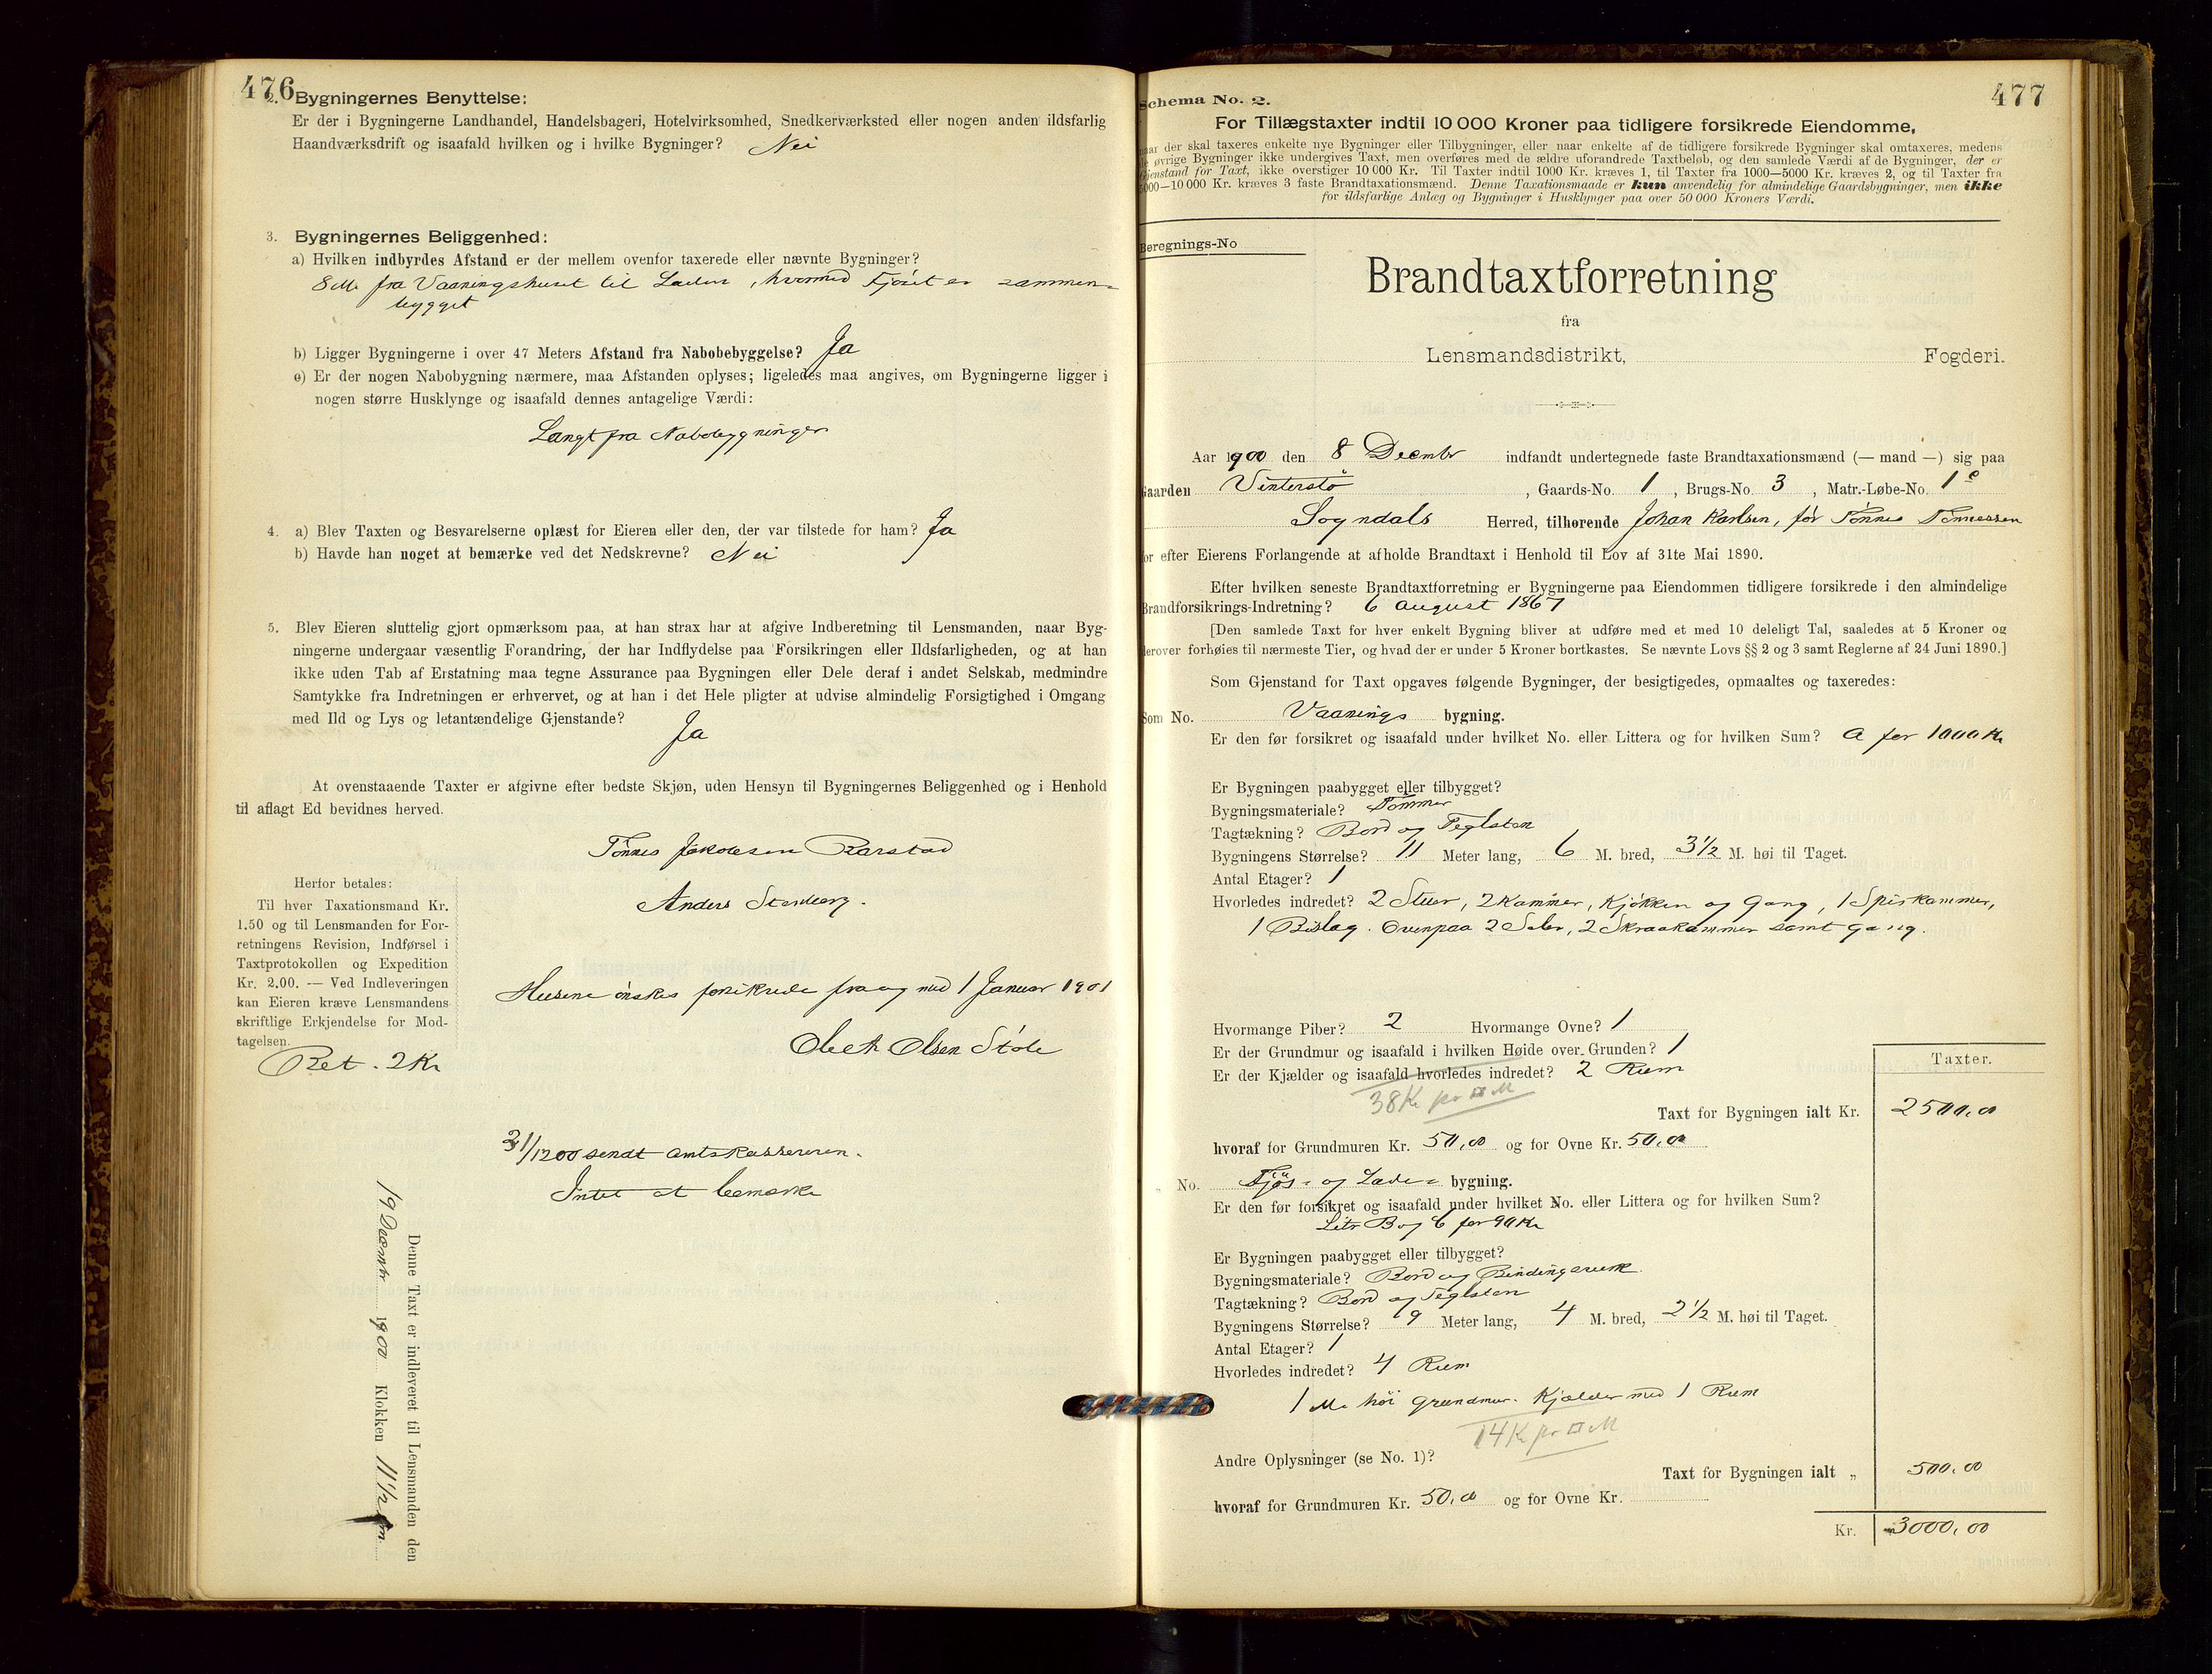 476
2. Bygningernes Benyttelse:
Er der i Bygningerne Landhandel, Handelsbageri, Hotelvirksomhed, Snedkerværksted eller nogen anden ildsfarlig
Haandværksdrift og isaafald hvilken og i hvilke Bygninger? Nei
3. Bygningernes Beliggenhed:
a) Hvilken indbyrdes Afstand er der mellem ovenfor taxerede eller nævnte Bygninger?
8 M. fra Vaaningshuset til Laden, hvormed Fjøset er sammen-
bygget
b) Ligger Bygningerne i over 47 Meters Afstand fra Nabobebyggelse? Ja
c) Er der nogen Nabobygning nærmere, maa Afstanden oplyses; ligeledes maa angives, om Bygningerne ligger i
nogen større Husklynge og isaafald dennes antagelige Værdi:
Langt fra Nabobygninger
4. a) Blev Taxten og Besvarelserne oplæst for Eieren eller den, der var tilstede for ham? Ja
b) Havde han noget at bemærke ved det Nedskrevne? Nei
5. Blev Eieren sluttelig gjort opmærksom paa, at han strax har at afgive Indberetning til Lensmanden, naar Byg-
ningerne undergaar væsentlig Forandring, der har Indflydelse paa Forsikringen eller Ildsfarligheden, og at han
ikke uden Tab af Erstatning maa tegne Assurance paa Bygningen eller Dele deraf i andet Selskab, medmindre
Samtykke fra Indretningen er erhvervet, og at han i det Hele pligter at udvise almindelig Forsigtighed i Omgang
med Ild og Lys og letantændelige Gjenstande? Ja
At ovenstaaende Taxter er afgivne efter bedste Skjøn, uden Hensyn til Bygningernes Beliggenhed og i Henhold
til aflagt Ed bevidnes herved.
Tønnes Jakobsen Rarstad
Anders Stenberg.
Herfor betales:
Til hver Taxationsmand Kr.
1.50 og til Lensmanden for For-
retningens Revision, Indførsel i
Taxtprotokollen og Expedition
Kr. 2.00. — Ved Indleveringen
kan Eieren kræve Lensmandens
skriftlige Erkjendelse for Mod-
tagelsen.
Bet. 2 Kr
Husene ønskes forsikrede fra og med 1 Januar 1901
Olsen Støle
31/1200 sendt Amtskassereren.
Intet at bemærke
Denne Taxt er indleveret til Lensmanden den
19 Decmbr 1900 Klokken 11 1/2 fm.
477
Schema No. 2.
For Tillægstaxter indtil 10 000 Kroner paa tidligere forsikrede Eiendomme,
naar der skal taxeres enkelte nye Bygninger eller Tilbygninger, eller naar enkelte af de tidligere forsikrede Bygninger skal omtaxeres, medens
de øvrige Bygninger ikke undergives Taxt, men overføres med de ældre uforandrede Taxtbeløb, og den samlede Værdi af de Bygninger, der er
Gjenstand for Taxt, ikke overstiger 10 000 Kr. Til Taxter indtil 1000 Kr. kræves 1, til Taxter fra 1000—5000 Kr. kræves 2, og til Taxter fra
5000—10 000 Kr. kræves 3 faste Brandtaxationsmænd. Denne Taxationsmaade er kun anvendelig for almindelige Gaardsbygninger, men ikke
for ildsfarlige Anlæg og Bygninger i Husklynger paa over 50 000 Kroners Værdi.
Beregnings-No
Brandtaxtforretning
fra
Lensmandsdistrikt, Fogderi.
Aar 1900 den 8 Decmbr indfandt undertegnede faste Brandtaxationsmænd (— mand —) sig paa
Gaarden Vinterstø, Gaards-No. 1, Brugs-No. 3, Matr.-Løbe-No. 1c
Sogndals Herred, tilhørende Johan Karlsen, før Tønnes Tønnessen
for efter Eierens Forlangende at afholde Brandtaxt i Henhold til Lov af 31te Mai 1890.
Efter hvilken seneste Brandtaxtforretning er Bygningerne paa Eiendommen tidligere forsikrede i den almindelige
Brandforsikrings-Indretning? 6 August 1867
[Den samlede Taxt for hver enkelt Bygning bliver at udføre med et med 10 deleligt Tal, saaledes at 5 Kroner og
derover forhøies til nærmeste Tier, og hvad der er under 5 Kroner bortkastes. Se nævnte Lovs §§ 2 og 3 samt Reglerne af 24 Juni 1890.]
Som Gjenstand for Taxt opgaves følgende Bygninger, der besigtigedes, opmaaltes og taxeredes:
Som No. Vaanings bygning.
Er den før forsikret og isaafald under hvilket No. eller Littera og for hvilken Sum? A for 1000 Kr
Er Bygningen paabygget eller tilbygget?
Bygningsmateriale? Tømmer
Tagtækning? Bord og Teglsten
Bygningens Størrelse? 11 Meter lang, 6 M. bred, 3 1/2 M. høi til Taget.
Antal Etager? 1
Hvorledes indredet? 2 Stuer, 2 Kammer, Kjøkken og Gang, 1 Spiskammer,
1 Bislag. Ovenpaa 2 Saler, 2 Skraakammer samt gang.
Hvormange Piber? 2 Hvormange Ovne? 1
Er der Grundmur og isaafald i hvilken Høide over Grunden? 1
Er der Kjælder og isaafald hvorledes indredet? 2 Rum
38 Kr pr □ M
Taxter.
Taxt for Bygningen ialt Kr. 2500,00
hvoraf for Grundmuren Kr. 50,00 og for Ovne Kr. 50,00
No. Fjøs- og Lade- bygning.
Er den før forsikret og isaafald under hvilket No. eller Littera og for hvilken Sum?
Litr B og C for 90 Kr
Er Bygningen paabygget eller tilbygget?
Bygningsmateriale? Bord og Bindingsverk
Tagtækning? Bord og Teglsten
Bygningens Størrelse? 9 Meter lang, 4 M. bred, 2 1/2 M. høi til Taget.
Antal Etager? 1
Hvorledes indredet? 4 Rum
1 M. høi Grundmur. Kjælder med 1 Rum
14 Kr pr □ M
Andre Oplysninger (se No. 1)?
Taxt for Bygningen ialt „ 500,00
hvoraf for Grundmuren Kr. 50,00 og for Ovne Kr.
Kr. 3000,00